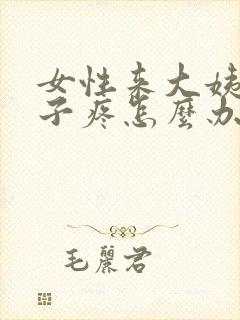 女性来大姨
子疼怎麼办
毛麗君